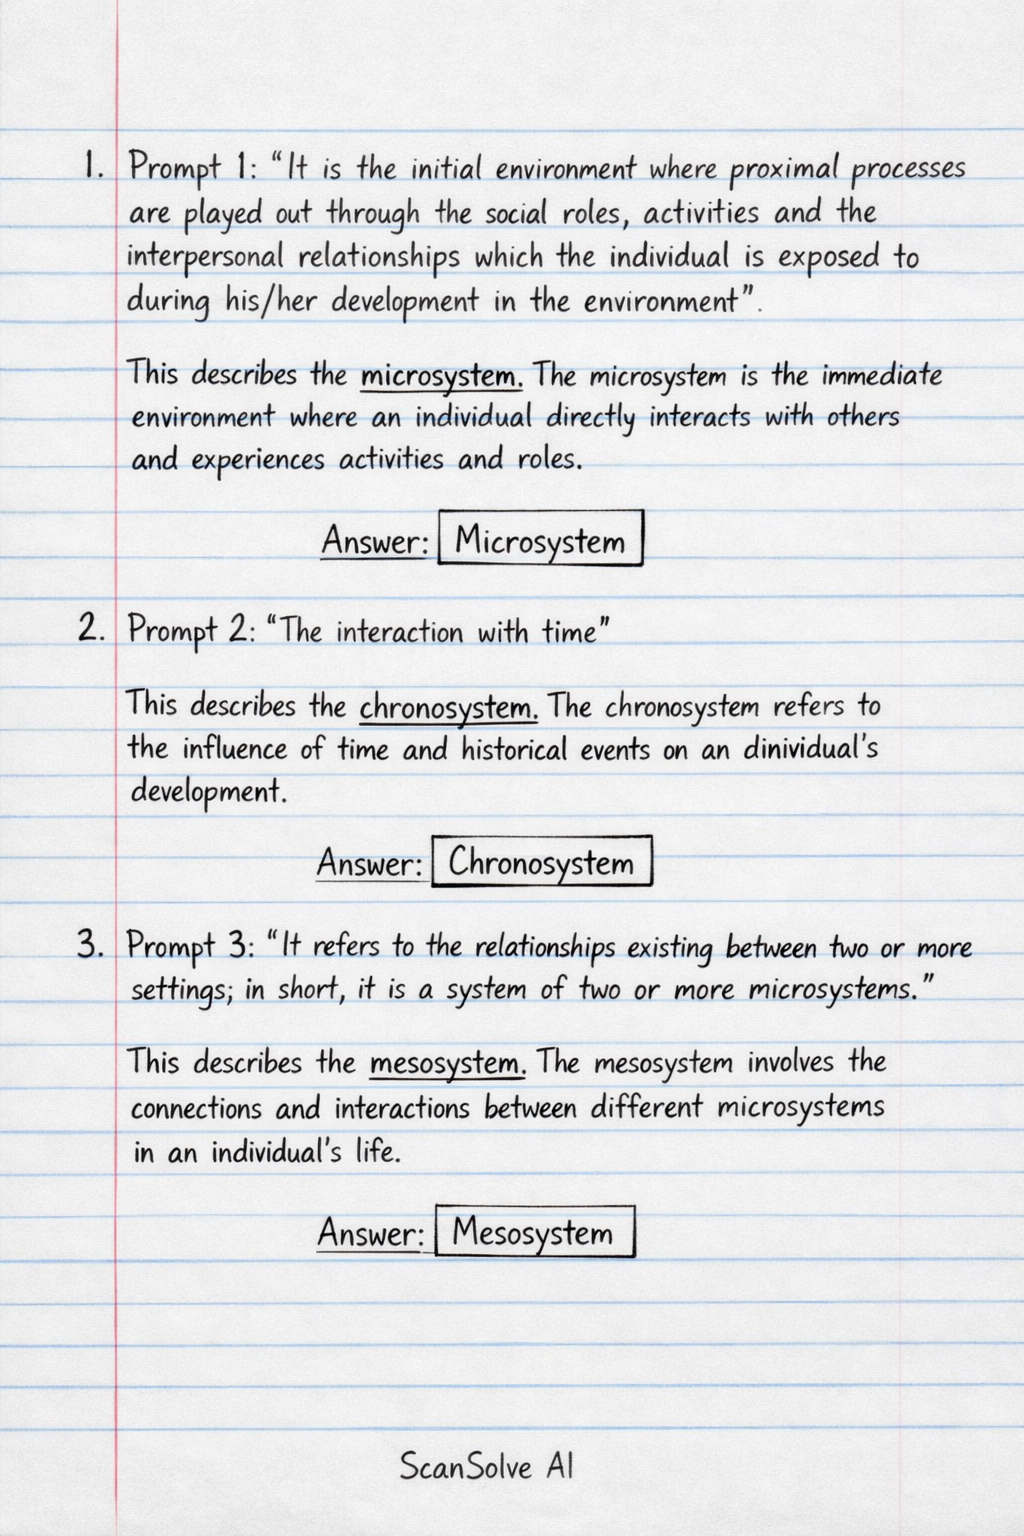 1. Prompt 1: “It is the initial environment where proximal processes
are played out through the social roles, activities and the
interpersonal relationships which the individual is exposed to
during his/her development in the environment”.
This describes the microsystem. The microsystem is the immediate
environment where an individual directly interacts with others
and experiences activities and roles.
Answer: Microsystem
2. Prompt 2: “The interaction with time”
This describes the chronosystem. The chronosystem refers to
the influence of time and historical events on an dinividual's
development.
Answer: Chronosystem
3. Prompt 3: “It refers to the relationships existing between two or more
settings; in short, it is a system of two or more microsystems.”
This describes the mesosystem. The mesosystem involves the
connections and interactions between different microsystems
in an individual's life.
Answer: Mesosystem
ScanSolve AI